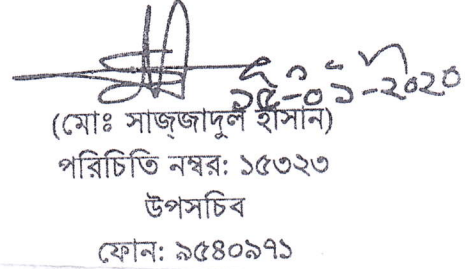 ১৫-০১-২০২০
(মোঃ সাজ্জাদুল হাসান)
পরিচিতি নম্বর: ১৫৩২৩
উপসচিব
ফোন: ৯৫৪০৯৭১